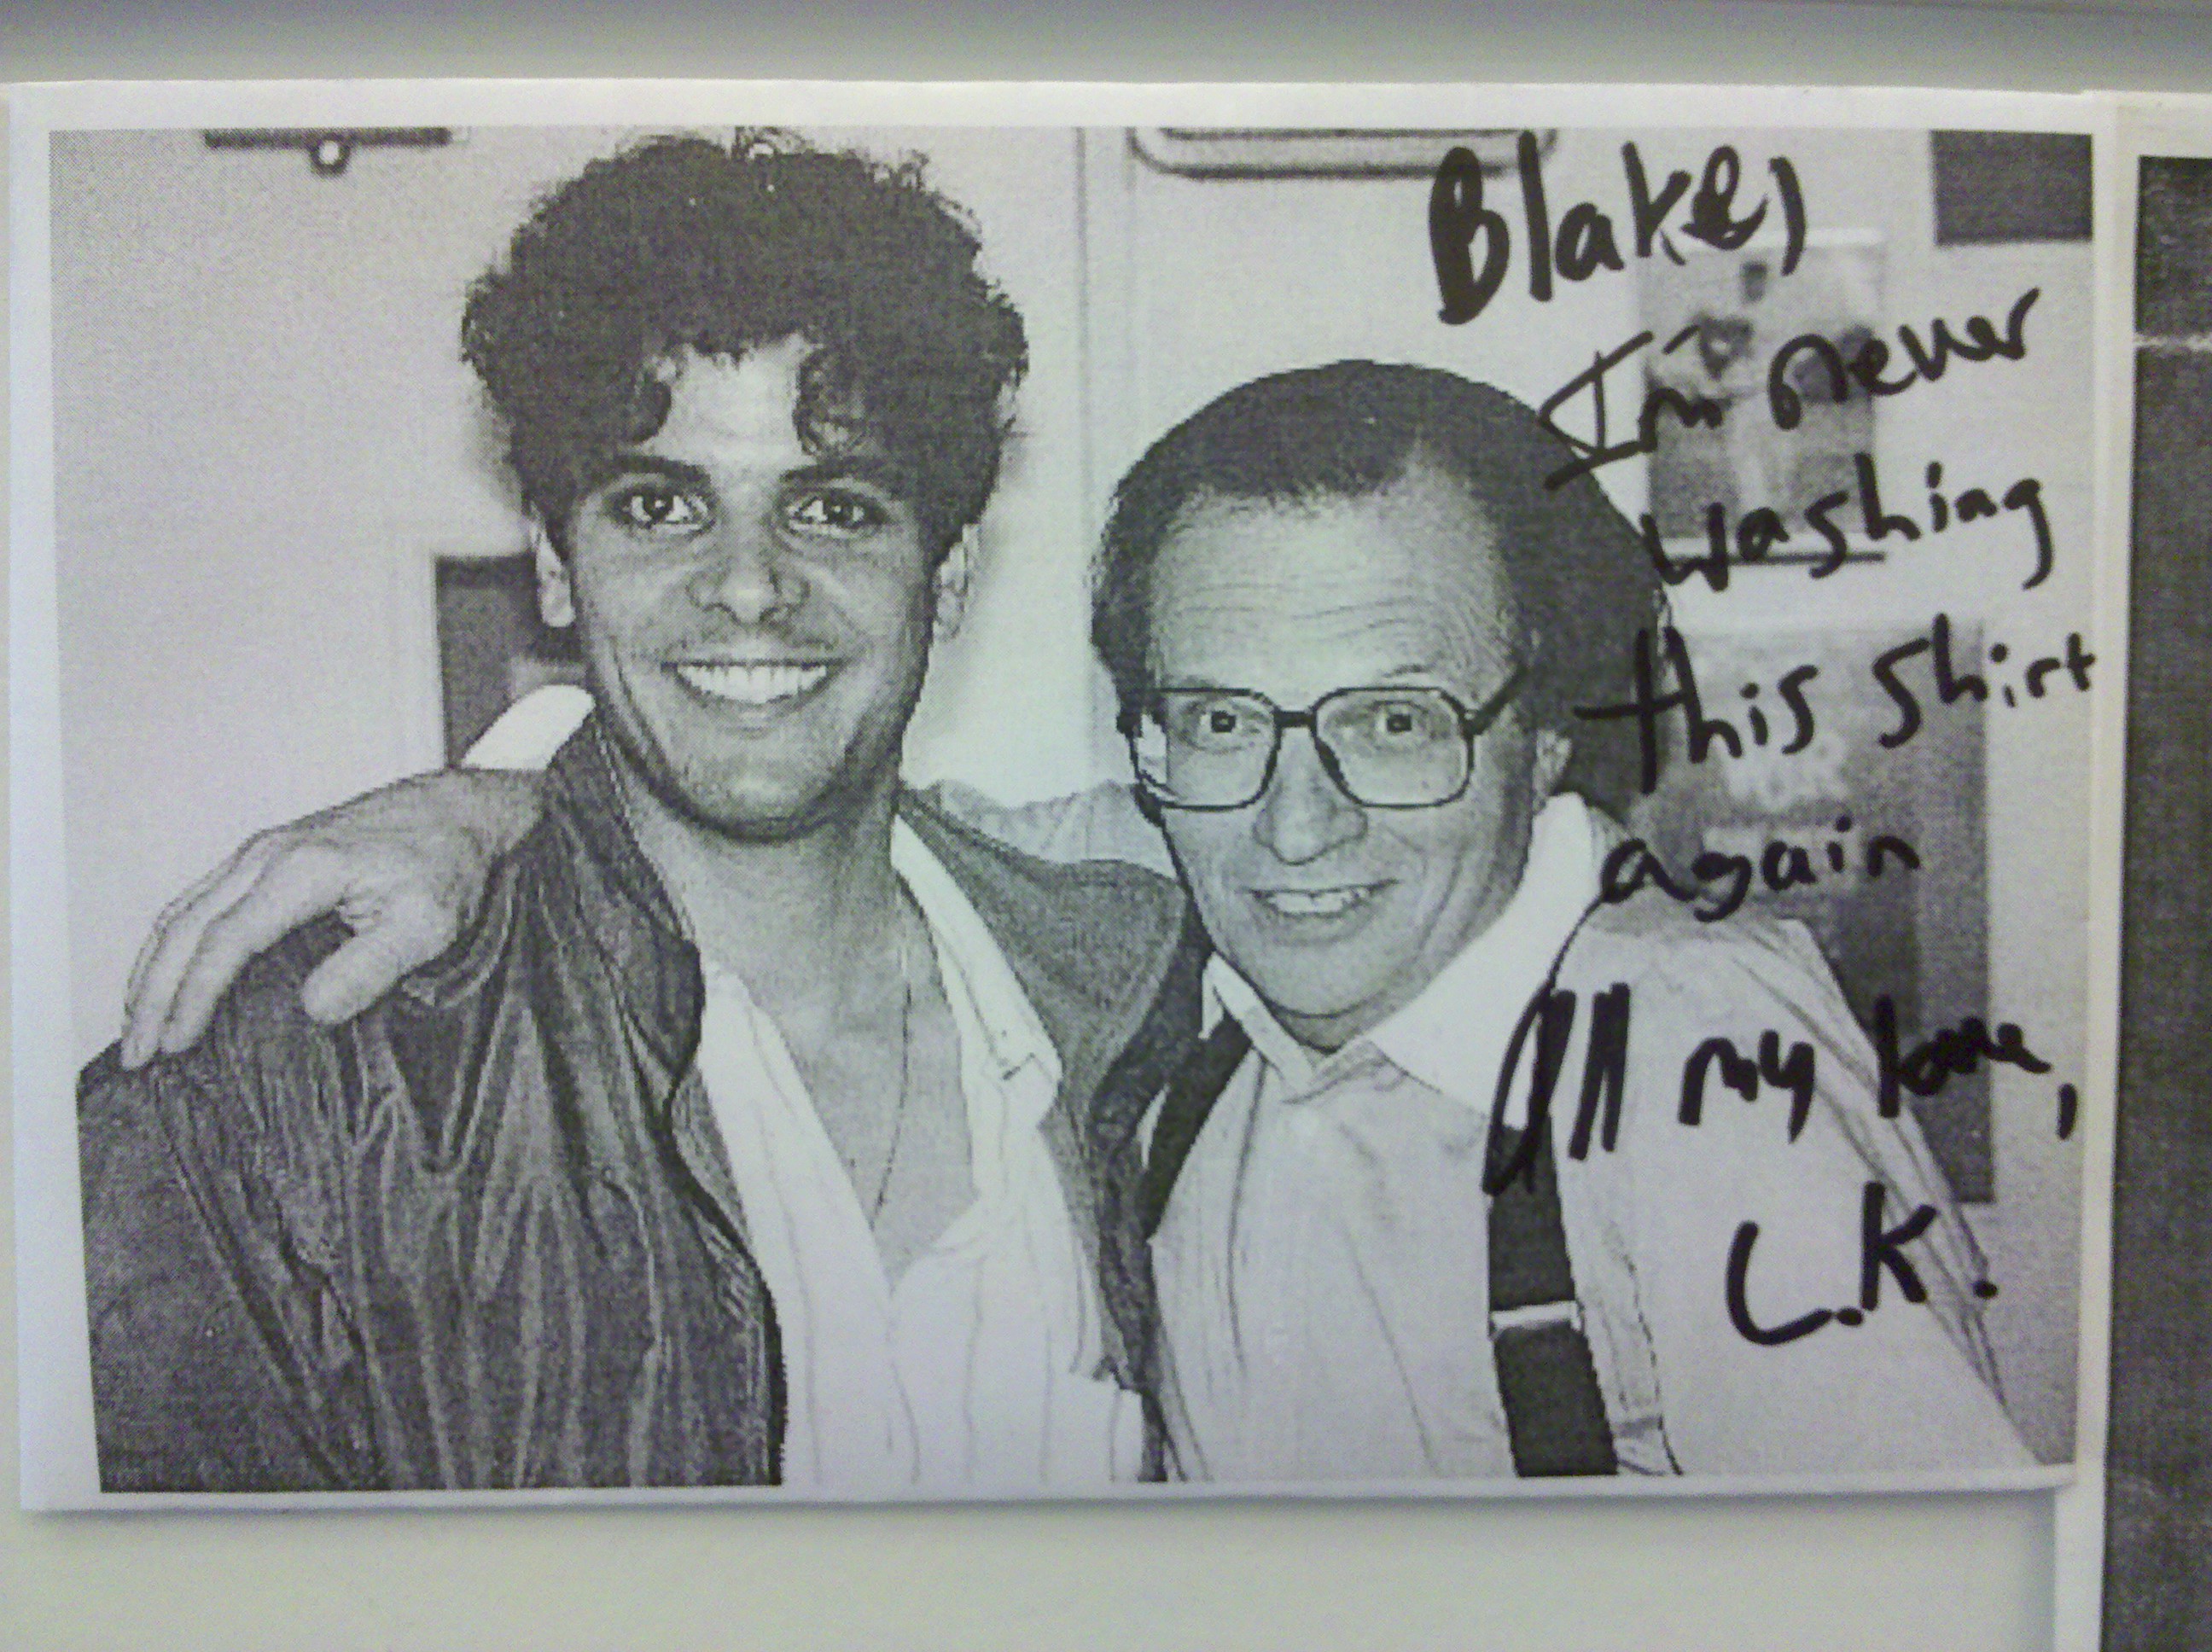 Blake,
I'm never
washing
this shirt
again
All my love,
L.K.